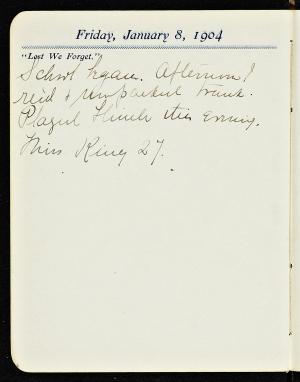 Friday, January 8, 1904
"Lest We Forget."
School began. Afternoon I
rec'd & unpacked trunk.
Played Flinch this Evening.
Miss King 27.